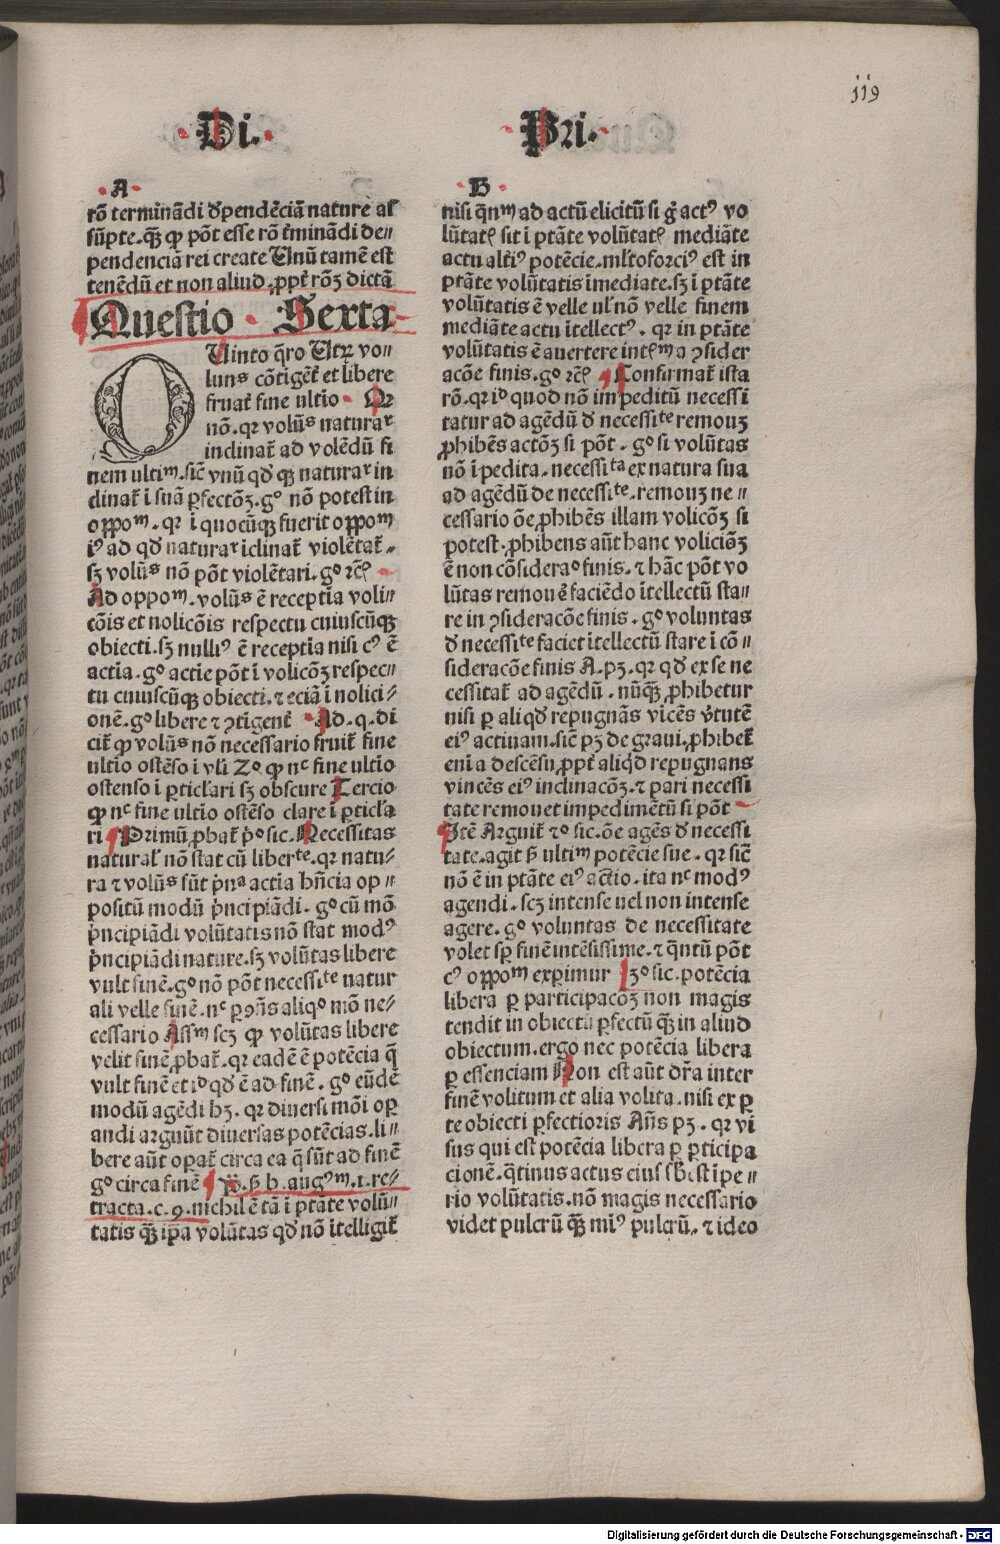 119
·Di.·
·Pri.·
·A·
rō terminādi dpendēciā nature aſ
sūpte. q̄ꝫ ꝙ pōt esse rō t̄minādi de⸗
pendenciā rei create Unū tamē est
tenēdū et non aliud ,ꝓpt̄ rōꝫ dictā
Questio · Sexta
QUinto q̄ro Utꝝ vo⸗
luns cōtigēt̄ et libere
fruat̄ fine ultīo · Qꝛ
nō. qꝛ volūs naturaʳ
inclinat̄ ad volēdū fi
nem ultimᵐ. sic̄ vnū qd̄ qꝫ naturaʳ in
clinat̄ ī suā ꝑfectōꝫ. gᵒ nō potest in
oppoᵐ. qꝛ ī quocūqꝫ fuerit oppoᵐ
iꝰ ad qd̄ naturaʳ īclinat̄ violētat̄ ⸗
sꝫ volūs nō pōt violētari. gᵒ ⁊cꝭ
Ad oppoᵐ. volūs ē receptīa voli⸗
cōis et nolicōis respectu cuiuscūqꝫ
obiecti. sꝫ nulliꝰ ē receptīa nisi cꝰ ē
actīa. gᵒ actīe pōt ī volicōꝫ respec⸗
tu cuiuscūqꝫ obiecti. ⁊ eciā ī nolici⸗
onē. gᵒ libere ⁊ ꝯtīgent̄ · Ad. q. di
cit̄ ꝙ volūs nō necessario fruit̄ fine
ultīo ostēso ī vl̄i Zᵒ ꝙ nᶜ fine ultīo
ostenso ī ꝑticl̄ari sꝫ obscure Tercio
ꝙ nᶜ fine ultīo ostēso clare ī ꝑticl̄a
ri Primū ,ꝓbat̄ p̄ᵒ sic. Necessitas
natural̄ nō stat cū liberᵗᵉ. qꝛ natu⸗
ra ⁊ volūs sūt p̄nᵃ actīa hn̄cia op⸗
positū modū p̄ncipiādi. gᵒ cū mō
p̄ncipiādi volūtatis nō stat modꝰ
p̄ncipiādi nature. sꝫ volūtas libere
vult finē. gᵒ nō pōt necessiᵗᵉ natur
ali velle finē. nᶜ ꝑ ꝯn̄s aliqᵒ mō ne⸗
cessario Assᵐ scꝫ ꝙ volūtas libere
velit finē ,ꝓbat̄. qꝛ eadē ē potēcia q̄
vult finē et iᵈ qd̄ ē ad finē. gᵒ eūdē
modū agēdi hꝫ. qꝛ diuersi mōi oꝑ
andi arguūt diuersas potēcias. li⸗
bere aūt oꝑat̄ circa ea q̄ sūt ad finē
gᵒ circa finē b. augꝰᵐ. 1. re⸗
tracta. c. 9. nichil ē tā ī ptāte volū⸗
tatis q̄ꝫ ip̄a volūtas qd̄ nō ītelligit̄
·B·
nisi q̄nᵐ ad actū elicitū si g̊ actꝰ vo
lūtatꝭ sit ī ptāte volūtatꝭ mediāte
actu alt̄iꝰ potēcie. ml̄toforciꝰ est in
ptāte volūtatis īmediate. sꝫ ī ptāte
voluntatis ē velle ul̄ nō velle finem
mediāte actu ītellectꝰ. qꝛ in ptāte
volūtatis ē auertere intꝭᵐ a ꝯsider
acōe finis. gᵒ ⁊cꝭ Confirmat̄ ista
rō. qꝛ iᵈ quod nō impeditū necessi
tatur ad agēdū d necessiᵗᵉ remouꝫ
,ꝓhibēs actōꝫ si pōt. gᵒ si volūtas
nō īpedita. necessiᵗᵃ ex natura sua
ad agēdū de necessiᵗᵉ. remouꝫ ne⸗
cessario ōe ,ꝓhibēs illam volicōꝫ si
potest. ,ꝓhibens aūt hanc voliciōꝫ
ē non cōsideraᵒ finis. ⁊ hāc pōt vo
lūtas remoue᷑ faciēdo ītellectū sta⸗
re in ꝯsideracōe finis. gᵒ voluntas
d necessiᵗᵉ faciet ītellectū stare ī cō⸗
sideracōe finis A. pꝫ. qꝛ qd̄ ex se ne
cessitat̄ ad agēdū. nūq̄ꝫ ,ꝓhibetur
nisi ꝑ aliqd̄ repugnās vīcēs v̄tutē
eiꝰ actiuam. sic̄ pꝫ de graui. ,ꝓhibet̄
enī a descēsu ,ꝓpt̄ aliqd̄ repugnans
vincēs eiꝰ inclinacōꝫ. ⁊ pari necessi
tate remouet impedimētū si pōt
Itē Arguit̄ ⁊ᵒ sic. ōe agēs d necessi
tate. agit ẜ ultimᵐ potēcie sue. qꝛ sic̄
nō ē in ptāte eiꝰ actio. ita nᶜ modꝰ
agendi. scꝫ intense uel non intense
agere. gᵒ voluntas de necessitate
volet sꝑ finē intēsissime. ⁊ q̄ntū pōt
cꝰ oppoᵐ exꝑimur 3ᵒ sic. potēcia
libera ꝑ participacōꝫ non magis
tendit in obiectū ꝑfectū q̄ꝫ in aliud
obiectum. ergo nec potēcia libera
ꝑ essenciam Non est aūt dr̄a inter
finē volitum et alia volita. nisi ex ꝑ
te obiecti ꝑfectioris Añs pꝫ. qꝛ vi
sus qui est potēcia libera ꝑ ꝑticipa
cionē. q̄tinus actus eius sb̄est īpe⸗
rio volūtatis. nō magis necessario
videt pulcrū q̄ꝫ miꝰ pulcrū. ⁊ ideo
Digitalisierung gefördert durch die Deutsche Forschungsgemeinschaft - DFG